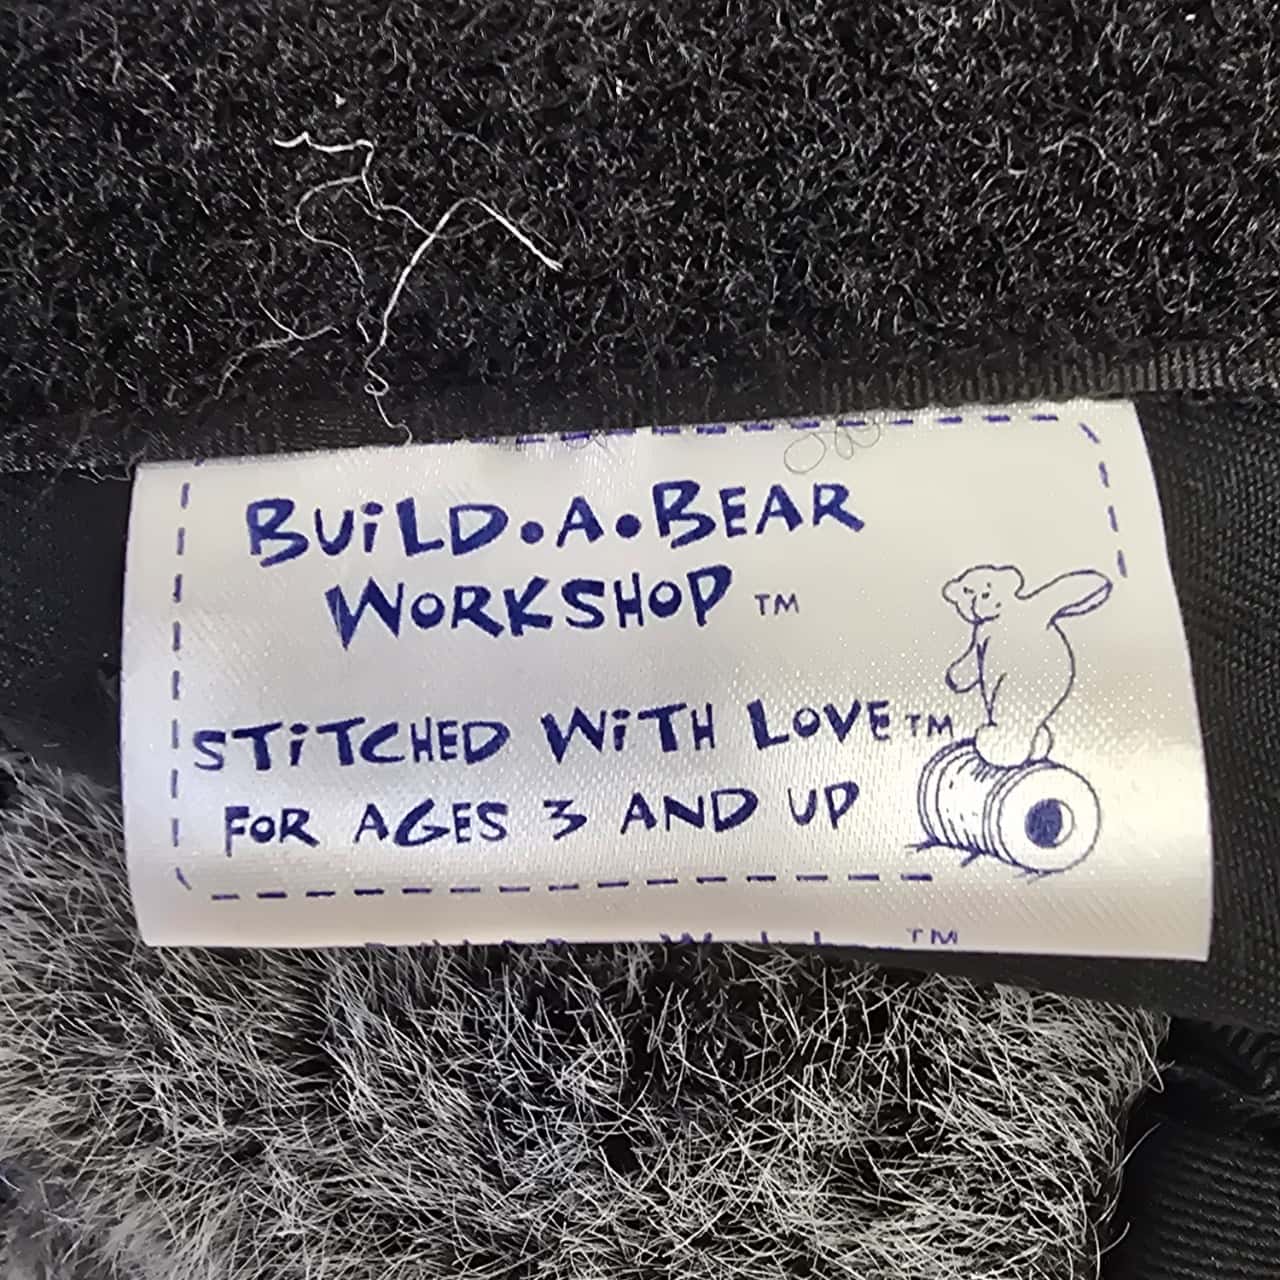 BUiLD•A•BEAR
WORKSHOP ™
STiTCHED WiTH LOVE™
FOR AGES 3 AND UP
™